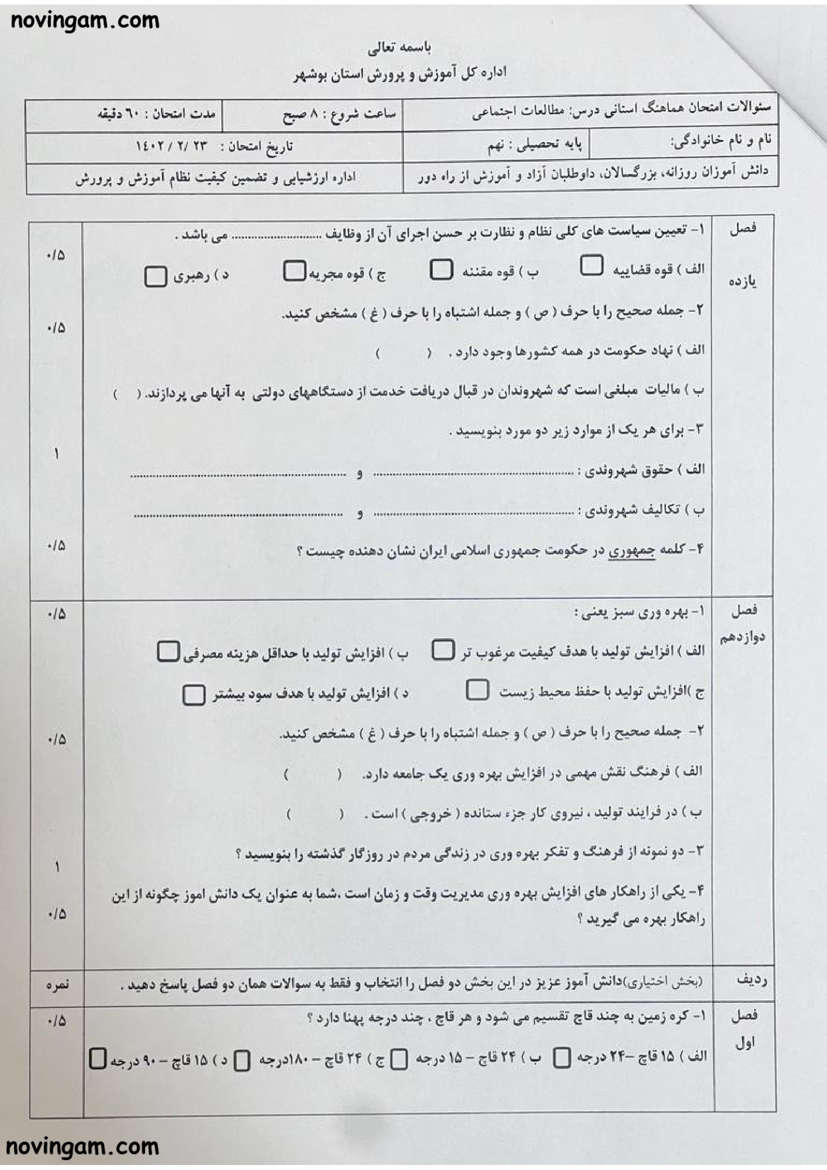 novingam.com
باسمه تعالی
اداره کل آموزش و پرورش استان بوشهر
سئوالات امتحان هماهنگ استانی درس: مطالعات اجتماعی
ساعت شروع : ۸ صبح
مدت امتحان : ۶۰ دقیقه
نام و نام خانوادگی:
پایه تحصیلی : نهم
تاریخ امتحان : ۲۳ / ۲ / ۱۴۰۲
دانش آموزان روزانه، بزرگسالان، داوطلبان آزاد و آموزش از راه دور
اداره ارزشیابی و تضمین کیفیت نظام آموزش و پرورش
فصل یازده
۱- تعیین سیاست های کلی نظام و نظارت بر حسن اجرای آن از وظایف ............................ می باشد .
۰/۵
الف ) قوه قضاییه ب ) قوه مقننه ج ) قوه مجریه د ) رهبری
۲- جمله صحیح را با حرف ( ص ) و جمله اشتباه را با حرف ( غ ) مشخص کنید.
۰/۵
الف ) نهاد حکومت در همه کشورها وجود دارد . ( )
ب ) مالیات مبلغی است که شهروندان در قبال دریافت خدمت از دستگاههای دولتی به آنها می پردازند. ( )
۳- برای هر یک از موارد زیر دو مورد بنویسید .
۱
الف ) حقوق شهروندی : ............................................................ و ................................................................
ب ) تکالیف شهروندی : ............................................................ و ................................................................
۴- کلمه جمهوری در حکومت جمهوری اسلامی ایران نشان دهنده چیست ؟
۰/۵
فصل دوازدهم
۱- بهره وری سبز یعنی :
۰/۵
الف ) افزایش تولید با هدف کیفیت مرغوب تر ب ) افزایش تولید با حداقل هزینه مصرفی
ج )افزایش تولید با حفظ محیط زیست د ) افزایش تولید با هدف سود بیشتر
۲- جمله صحیح را با حرف ( ص ) و جمله اشتباه را با حرف ( غ ) مشخص کنید.
۰/۵
الف ) فرهنگ نقش مهمی در افزایش بهره وری یک جامعه دارد. ( )
ب ) در فرایند تولید ، نیروی کار جزء ستانده ( خروجی ) است . ( )
۳- دو نمونه از فرهنگ و تفکر بهره وری در زندگی مردم در روزگار گذشته را بنویسید ؟
۱
۴- یکی از راهکار های افزایش بهره وری مدیریت وقت و زمان است ،شما به عنوان یک دانش اموز چگونه از این
راهکار بهره می گیرید ؟
۰/۵
ردیف
(بخش اختیاری)دانش آموز عزیز در این بخش دو فصل را انتخاب و فقط به سوالات همان دو فصل پاسخ دهید .
نمره
فصل اول
۱- کره زمین به چند قاچ تقسیم می شود و هر قاچ ، چند درجه پهنا دارد ؟
۰/۵
الف ) ۱۵ قاچ –۲۴ درجه ب ) ۲۴ قاچ – ۱۵ درجه ج ) ۲۴ قاچ – ۱۸۰درجه د ) ۱۵ قاچ – ۹۰ درجه
novingam.com